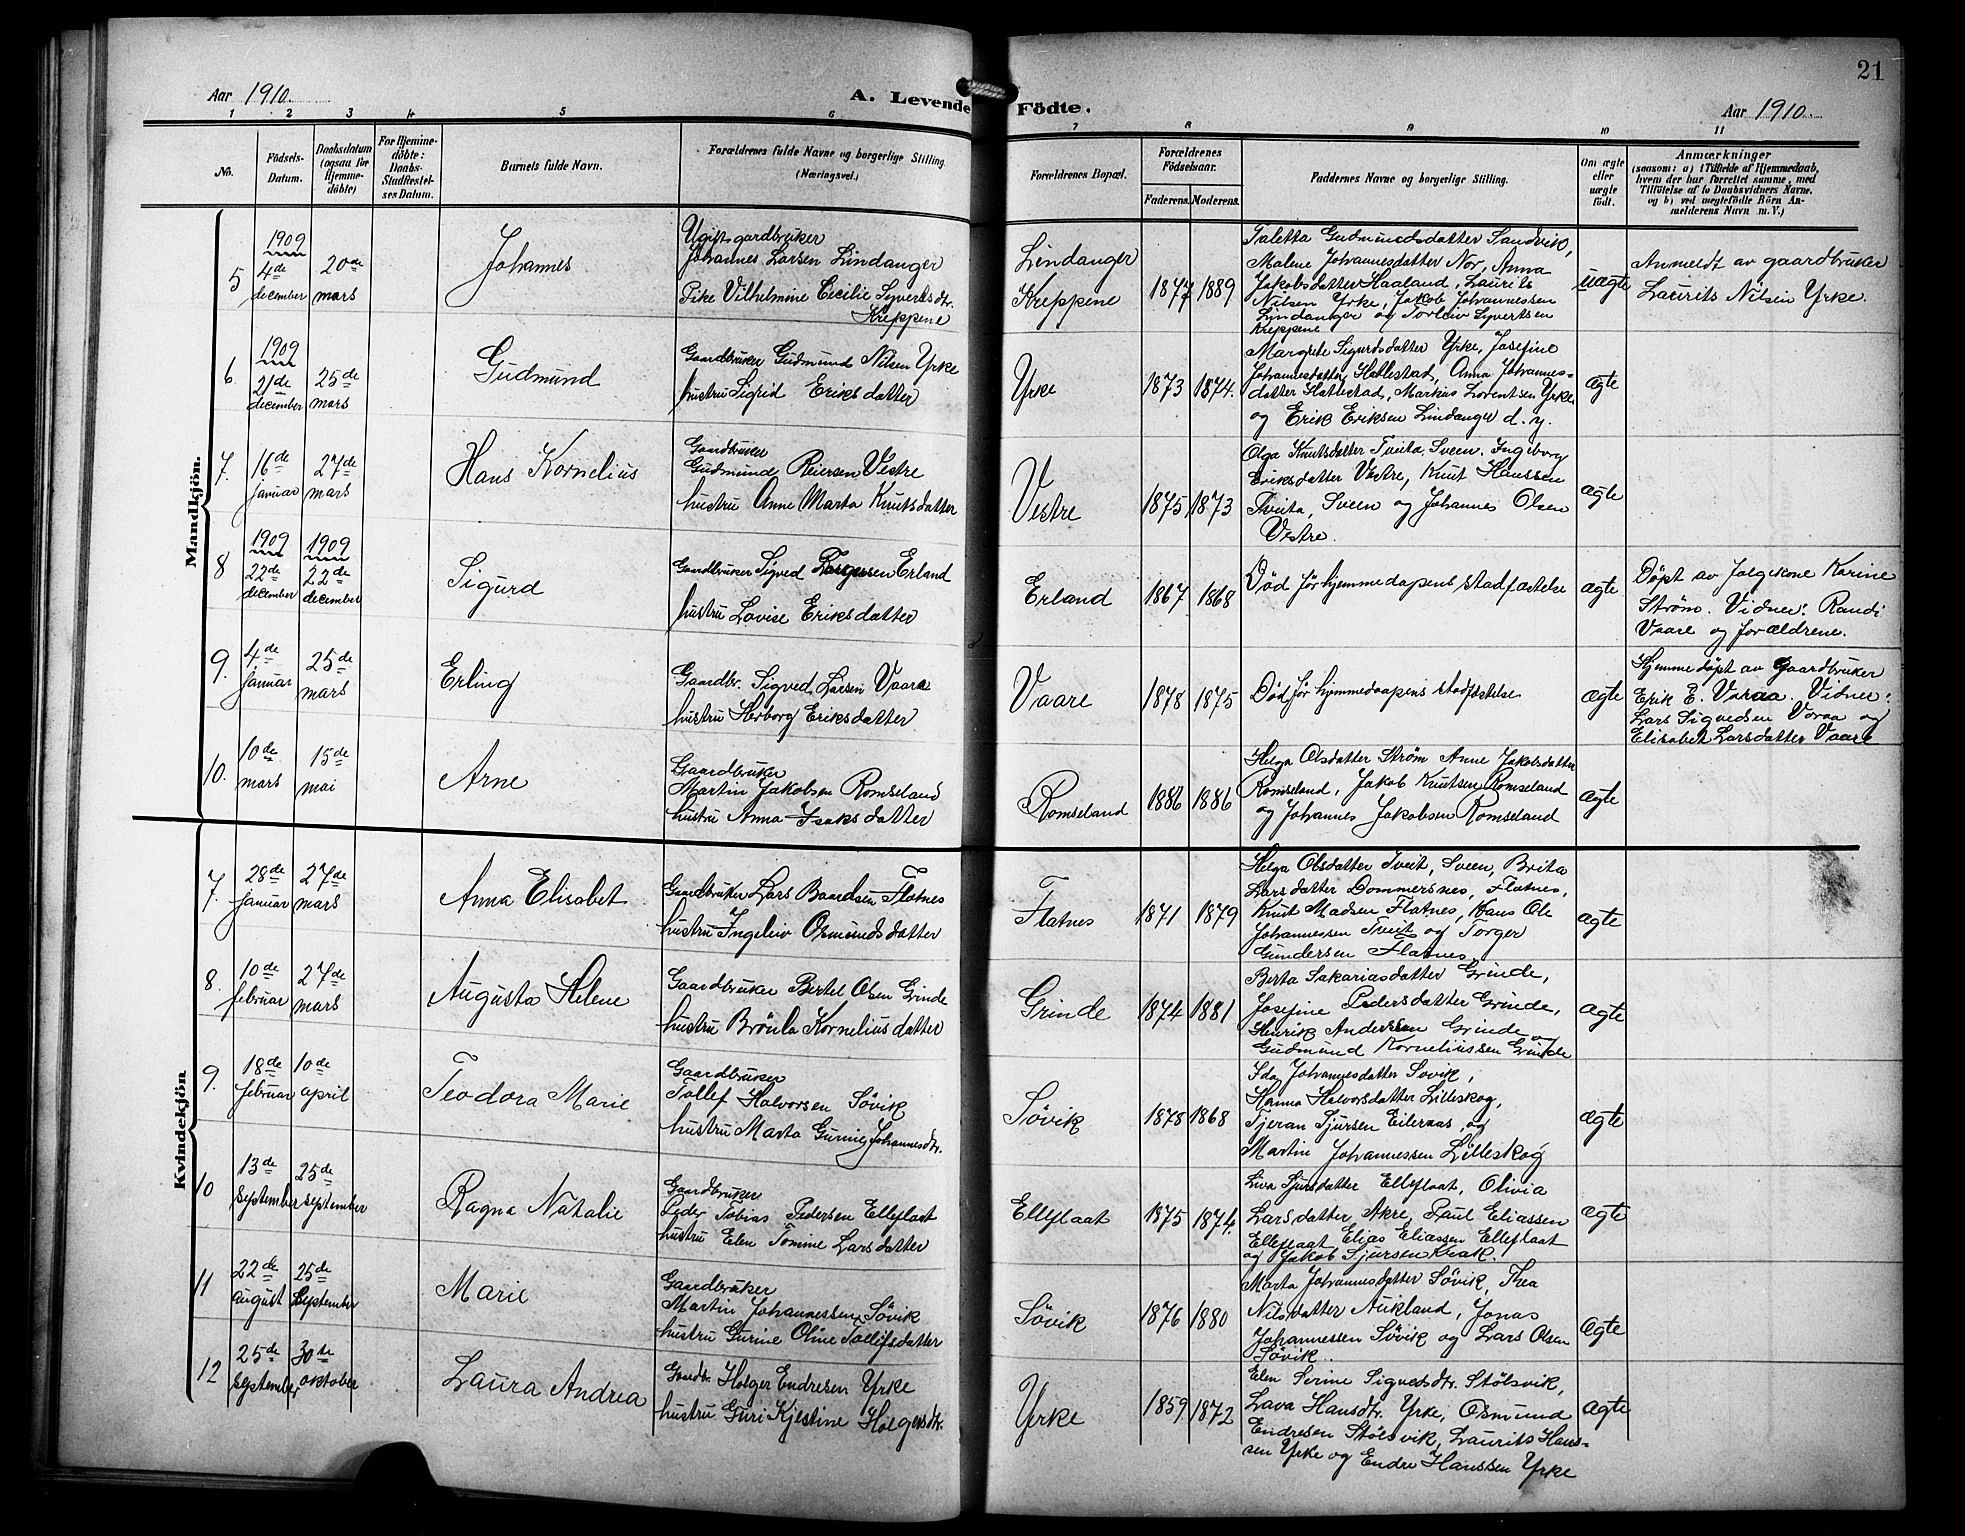 21
Aar 1910.
A. Levende Födte.
Aar 1910.
1 2 3 4 5 6 7 8 9 10 11
No.
Födsels-
Datum.
Daabsdatum
(ogsaa for
Hjemme-
döbte)
For Hjemme-
döbte:
Daabs-
Stadfæstel-
ses Datum.
Barnets fulde Navn.
Forældrenes fulde Navne og borgerlige Stilling.
(Næringsvei.)
Forældrenes Bopæl.
Forældrenes
Födselsaar.
Faderens. Moderens.
Faddernes Navne og borgerlige Stilling.
Om ægte
eller
uægte
födt.
Anmærkninger
(saasom: a) i Tilfælde af Hjemmedaab,
hvem der har forrettet samme, med
Tilföielse af to Daabsvidners Navne,
og b) ved uægtefödte Börn An-
melderens Navn m. V.)
Mandkjön.
5
1909
4de
december
20de
mars
Johannes
Ugift gardbruker
Johannes Larsen Lindanger
Pike Vilhelmine Cecilie Syvertsdtr.
Kreppene
Lindanger
Kreppene
1877 1889
Taletta Gudmundsdatter Sandvik,
Malene Johannesdatter Nor, Anna
Jakobsdatter Haaland, Laurits
Nilsen Yrke, Jakob Johannessen
Lindanger og Torleiv Syvertsen
Kreppene
uægte
Anmeldt av gaardbruker
Laurits Nilsen Yrke.
6.
1909
21de
december
25de
mars
Gudmund
Gaardbruker Gudmund Nilsen Yrke
hustru Sigrid Eriksdatter
Yrke
1873 1874.
Margrete Sigurdsdatter Yrke, Josefine
Johannesdatter Hatlestad, Anna Johannes-
datter Hatlestad, Markus Lorentsen Yrke
og Erik Eriksen Lindanger d. y.
ægte
7.
16de
januar
27de
mars
Hans Kornelius
Gaardbruker
Gudmund Reiersen Vestre
hustru Anne Marta Knutsdatter
Vestre
1875 1873
Olga Knutsdatter Tveita, Sveen, Ingeborg
Eriksdatter Vestre, Knut Hanssen
Tveita, Sveen og Johannes Olsen
Vestre.
ægte
8
1909
22de
december
1909
22de
december
Sigurd
Gaardbruker Sigved Erland
hustru Lovise Eriksdatter
Erland
1867 1868
Död før hjemmedaapens stadfæstelse
ægte
Døpt av Karine
Strøm. Vidner: Randi
Vaare og forældrene.
9.
4de
januar
25de
mars
Erling
Gaardbr. Sigved Larsen Vaara
hustru Herborg Eriksdatter
Vaare
1878 1875
Död før hjemmedaapens stadfæstelse
ægte
Hjemmedøpt av Gaardbruker
Erik E. Varaa. Vidner:
Lars Sigvedsen Varaa og
Elisabet Larsdatter Vaare
10.
10de
mars
15de
mai
Arne
Gaardbruker
Martin Jakobsen Romseland
hustru Anna Isaksdatter
Romseland
1886 1886
Helga Olsdatter Strøm Anne Jakobsdatter
Romseland, Jakob Knutsen Romseland
og Johannes Jakobsen Romseland
ægte
Kvindekjön
7.
28de
januar
27de
mars
Anna Elisabet
Gaardbruker Lars Baardsen Flatnes
hustru Ingeleiv Osmundsdatter
Flatnes
1871 1879
Helga Olsdatter Tveit, Sveen, Brita
Larsdatter Dommersnes, Flatnes,
Knut Madsen Flatnes, Hans Ole
Johannessen Tveit og Torger
Gundersen Flatnes,
ægte
8.
10de
februar
27de
mars
Augusta Helene
Gaardbruker Bertel Olsen Grinde
hustru Brönla Korneliusdatter
Grinde
1874 1881
Berta Sakariasdatter Grinde,
Josefine Pedersdatter Grinde,
Henrik Anderssen Grinde og
Gudmund Korneliussen Grinde
ægte
9.
18de
februar
10de
april
Teodora Marie
Gaardbruker
Tollef Halvorsen Søvik
hustru Marta Gurine Johannesdtr.
Søvik
1878 1868
Ida Johannesdatter Søvik,
Hanna Halvorsdatter Lilleskog,
Tjeran Sjursen Eilernas, og
Martin Johannessen Lilleskog
ægte
10
13de
september
25de
september
Ragna Natalie
Gaardbruker
Peder Tobias Pedersen Elleflaat
hustru Elen Tomine Larsdatter
Elleflaat
1875 1874.
Liva Sjursdatter Elleflaat, Olivia
Larsdatter Akre, Paul Eliassen
Elleflaat Elias Eliassen Elleflaat
og Jakob Sjursen Krak.
ægte
11
22de
august
25de
September
Marie
Gaardbruker
Martin Johannessen Søvik
hustru Gurine Oline Tollefsdatter
Søvik
1876 1880
Marta Johannesdatter Søvik, Thea
Nilsdatter Aukland, Jonas
Johannessen Søvik og Lars Olsen
Søvik.
ægte
12
25de
september
30te
oktober
Laura Andrea
Gaardbr. Holger Endresen Yrke
hustru Guri Kjestine Holgersdtr.
Yrke
1859 1872
Elen Serine Sigvedsdtr. Stölsvik,
Lava Hansdtr. Yrke, Osmund
Endresen Stölsvik, Laurits Hans-
sen Yrke og Endre Hanssen Yrke
ægte